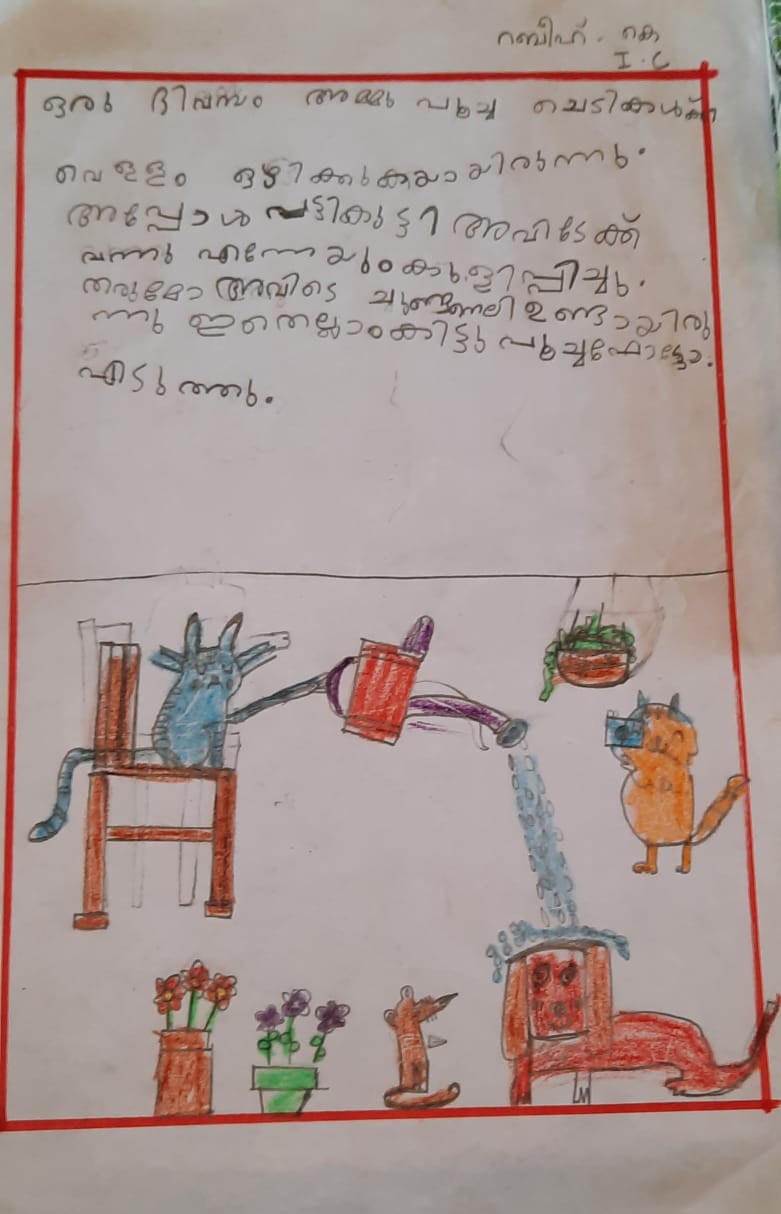 റബീഹ്. കെ
I. C
ഒരു ദിവസം അമ്മു പൂച്ച ചെടികൾക്ക്
വെള്ളം ഒഴിക്കുകയായിരുന്നു.
അപ്പോൾ പട്ടികുട്ടി അവിടേക്ക്
വന്നു എന്നേയും കുളിപ്പിച്ചു.
തരുമോ അവിടെ ചുണ്ടണലി ഉണ്ടായിരു
ന്നു ഇതെല്ലാം കിട്ടു പൂച്ച ഫോട്ടോ.
എടുത്തു.